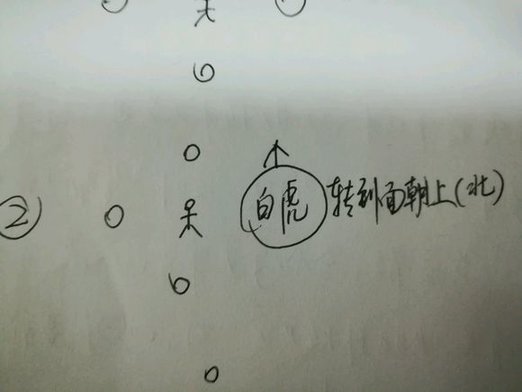 ② 白虎 转到面朝上(北)